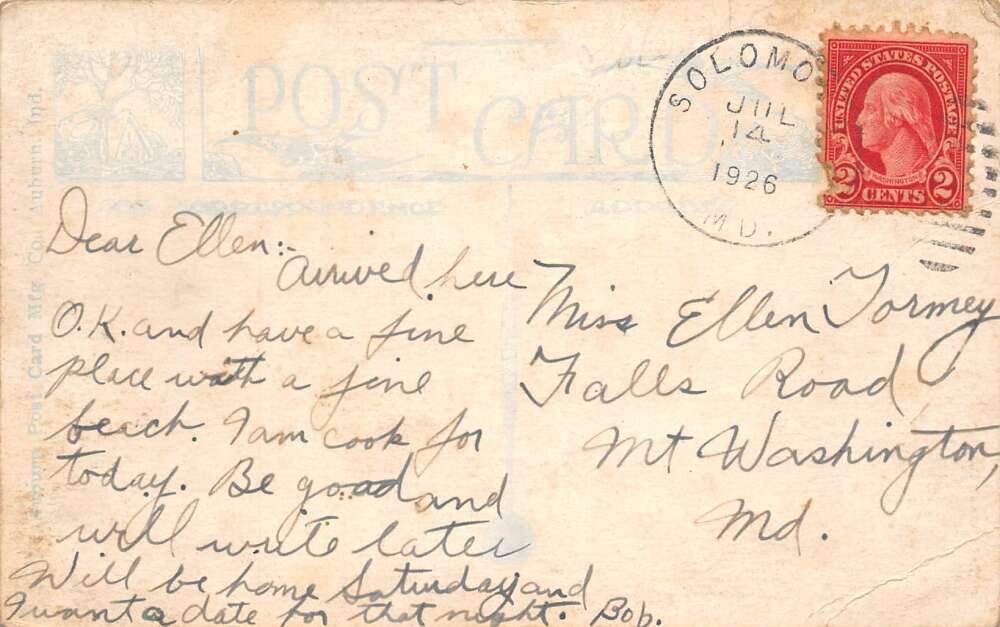 POST CARD
CORRESPONDENCE
ADDRESS
Post Card Mfg. Co., Auburn, Ind.
SOLOMO
JUL
14
1926
MD.
UNITED STATES POSTAGE
WASHINGTON
2 CENTS 2
Dear Ellen:-
Arrived here
O.K. and have a fine
place with a fine
beach. I am cook for
today. Be good and
will write later
Will be home Saturday and
I want a date for that night. Bob.
Miss Ellen Tormey
Falls Road,
Mt Washington,
Md.